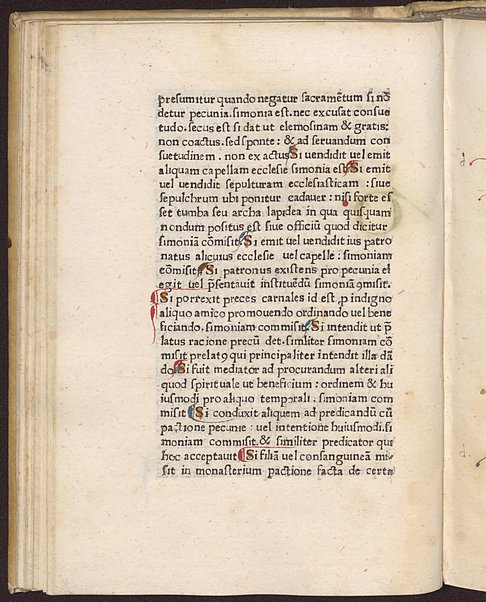 presumitur quando negatur sacramẽtum si nõ
detur pecunia. simonia est. nec excusat consue
tudo. secus est si dat ut elemosinam & gratis:
non coactus. sed sponte: & ad seruandum con
suetudinem. non ex actus Si uendidit uel emit
aliquam capellam ecclesie simonia est. Si emit
uel uendidit sepulturam ecclesiasticam: siue
sepulchrum ubi ponitur cadauer: nisi forte es
set tumba seu archa lapidea in qua quisquam
nondum positus est siue officiũ quod dicitur
simoniã cõmisit. Si emit uel uendidit ius patro
natus alicuius ecclesie uel capelle: simoniam
cõmisit. Si patronus existens pro pecunia el
egit uel p̃sentauit instituẽdũ simoniã ꝯmisit.
Si porrexit preces carnales id est ꝓ indigno
aliquo amico promouendo ordinando uel bene
ficiando. simoniam commisit. Si intendit ut p̃
latus racione precũ det. similiter simoniam cõ
misit prelatꝰ qui principaliter intendit illa dã
do. Si fuit mediator ad procurandum alteri ali
quod spirituale ut beneficium: ordinem & hu
iusmodi pro aliquo temporali. simoniam com
misit Si conduxit aliquem ad predicandũ cũ
pactione pecunie: uel intentione huiusmodi. si
moniam commisit. & similiter predicator qui
hoc acceptauit Si filiã uel consanguineã mi-
sit in monasterium pactione facta de certa